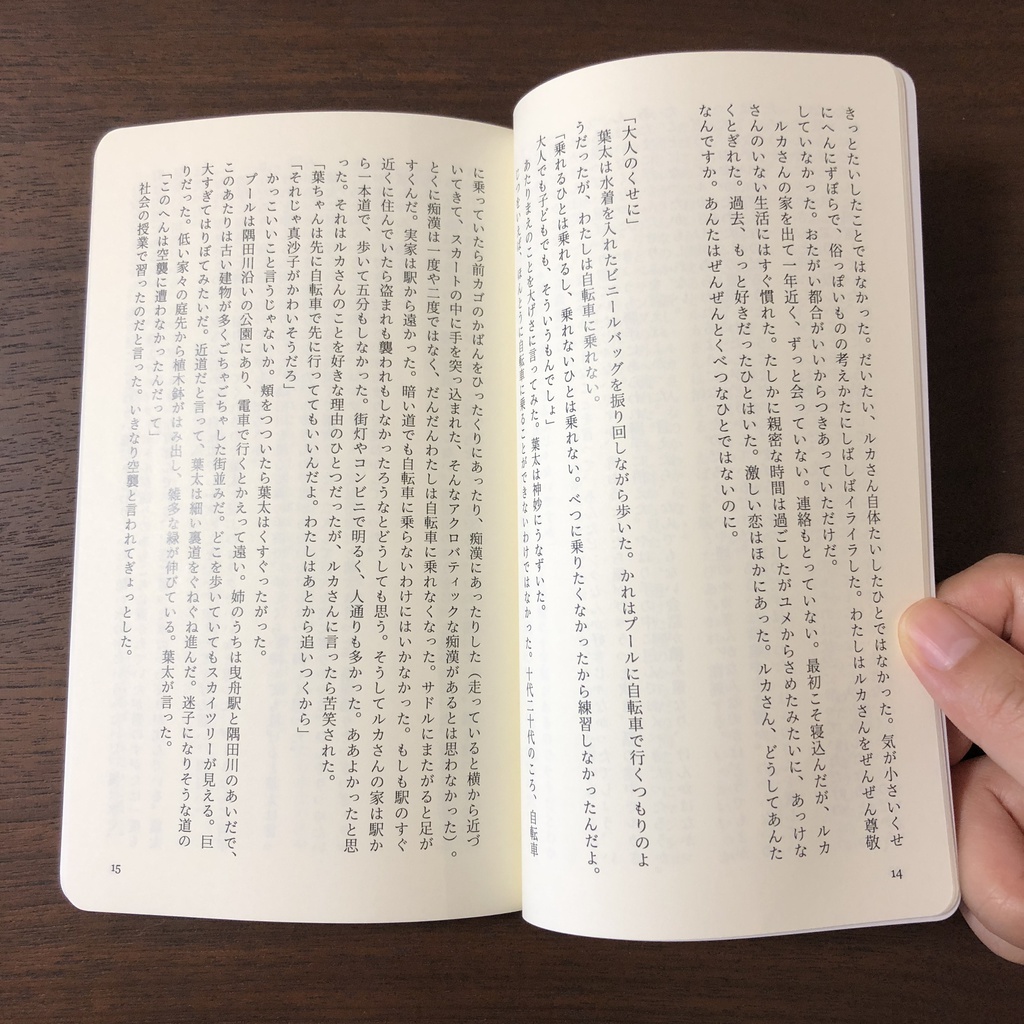 きっとたいしたことではなかった。だいたい、ルカさん自体たいしたひとではなかった。気が小さいくせ
にへんにずぼらで、俗っぽいものの考えかたにしばしばイライラした。わたしはルカさんをぜんぜん尊敬
していなかった。おたがい都合がいいからつきあっていただけだ。
ルカさんの家を出て一年近く、ずっと会っていない。連絡もとっていない。最初こそ寝込んだが、ルカ
さんのいない生活にはすぐ慣れた。たしかに親密な時間は過ごしたがユメからさめたみたいに、あっけな
くとぎれた。過去、もっと好きだったひとはいた。激しい恋はほかにあった。ルカさん、どうしてあんた
なんですか。あんたはぜんぜんとくべつなひとではないのに。
「大人のくせに」
葉太は水着を入れたビニールバッグを振り回しながら歩いた。かれはプールに自転車で行くつもりのよ
うだったが、わたしは自転車に乗れない。
「乗れるひとは乗れるし、乗れないひとは乗れない。べつに乗りたくなかったから練習しなかったんだよ。
大人でも子どもでも、そういうもんでしょ」
あたりまえのことを大げさに言ってみた。葉太は神妙にうなずいた。
に自転車に乗ることができないわけではなかった。十代二十代のころ、自転車
14
に乗っていたら前カゴのかばんをひったくりにあったり、痴漢にあったりした（走っていると横から近づ
いてきて、スカートの中に手を突っ込まれた、そんなアクロバティックな痴漢があるとは思わなかった）。
とくに痴漢は一度や二度ではなく、だんだんわたしは自転車に乗れなくなった。サドルにまたがると足が
すくんだ。実家は駅から遠かった。暗い道でも自転車に乗らないわけにはいかなかった。もしも駅のすぐ
近くに住んでいたら盗まれも襲われもしなかったろうなとどうしても思う。そうしてルカさんの家は駅か
ら一本道で、歩いて五分もしなかった。街灯やコンビニで明るく、人通りも多かった。ああよかったと思
った。それはルカさんのことを好きな理由のひとつだったが、ルカさんに言ったら苦笑された。
「葉ちゃんは先に自転車で先に行っててもいいんだよ。わたしはあとから追いつくから」
「それじゃ真沙子がかわいそうだろ」
かっこいいこと言うじゃないか。頬をつついたら葉太はくすぐったがった。
プールは隅田川沿いの公園にあり、電車で行くとかえって遠い。姉のうちは曳舟駅と隅田川のあいだで、
このあたりは古い建物が多くごちゃごちゃした街並みだ。どこを歩いていてもスカイツリーが見える。巨
大すぎてはりぼてみたいだ。近道だと言って、葉太は細い裏道をぐねぐね進んだ。迷子になりそうな道の
りだった。低い家々の庭先から植木鉢がはみ出し、雑多な緑が伸びている。葉太が言った。
「このへんは空襲に遭わなかったんだって」
社会の授業で習ったのだと言った。いきなり空襲と言われてぎょっとした。
15